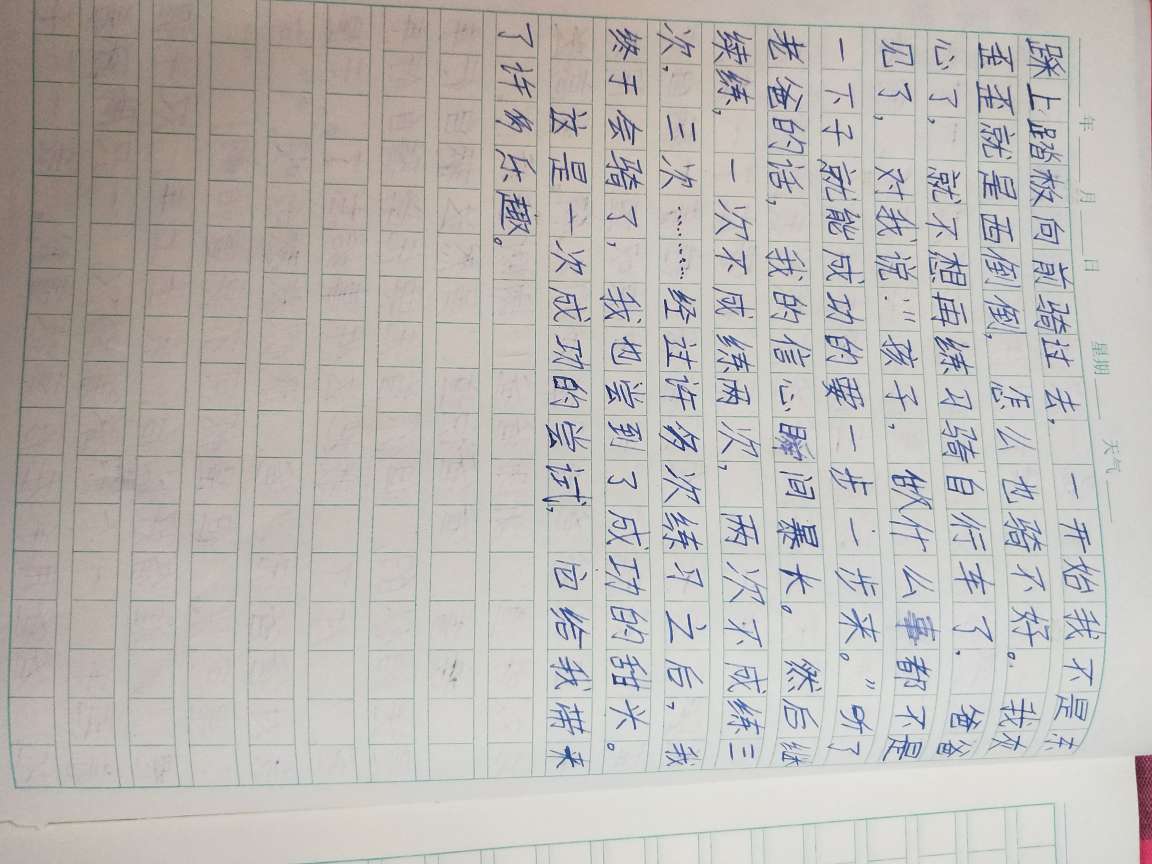 年 月 日 星期 天气
踩上踏板向前骑过去，一开始我不是东
歪歪就是西倒倒，怎么也骑不好。我灰
心了，就不想再练习骑自行车了，爸爸
见了，对我说："孩子，做什么事都不是
一下子就能成功的要一步一步来。"听了
老爸的话，我的信心瞬间暴大。然后继
续练，一次不成练两次，两次不成练三
次，三次……经过许多次练习之后，我
终于会骑了，我也尝到了成功的甜头。
这是一次成功的尝试，它给我带来
了许多乐趣。